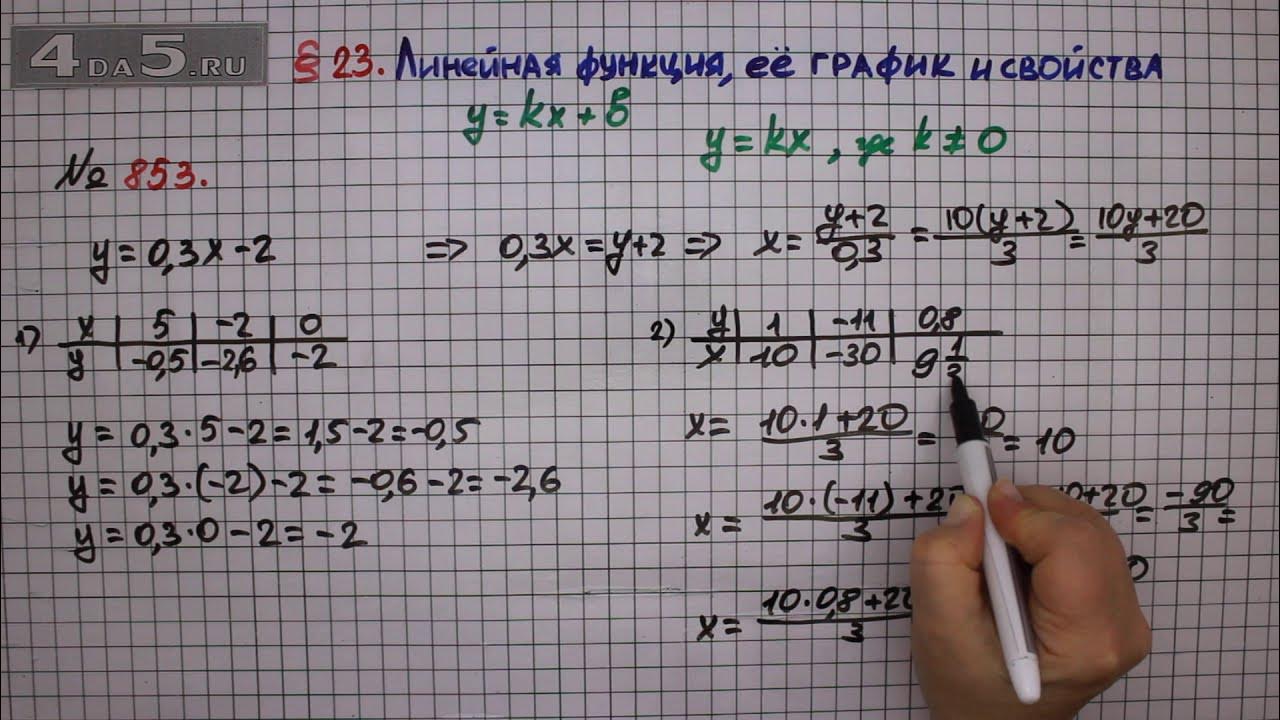 4DA5.RU
§ 23. Линейная функция, её график и свойства
y = kx + b
y = kx, где k ≠ 0
№ 853.
y = 0,3x - 2 => 0,3x = y+2 => x = (y+2)/0,3 = 10(y+2)/3 = (10y+20)/3
1) x | 5 | -2 | 0
y | -0,5 | -2,6 | -2
y = 0,3·5 - 2 = 1,5 - 2 = -0,5
y = 0,3·(-2) - 2 = -0,6 - 2 = -2,6
y = 0,3·0 - 2 = -2
2) y | 1 | -11 | 0,8
x | 10 | -30 | 9 1/3
x = (10·1+20)/3 = = 10
x = (10·(-11)+20)/3 +20 = -90/3 =
x = (10·0,8+20)/3